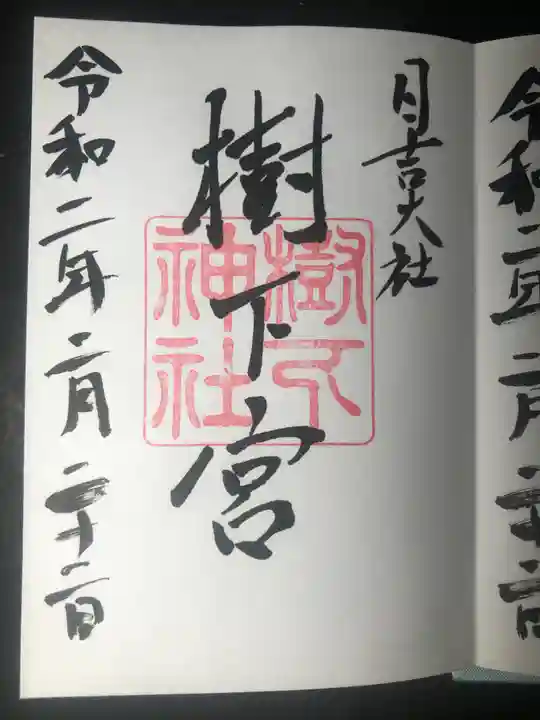 日吉大社
樹下宮
樹下
神社
令和二年二月二十二日
令和二年二月二十二日